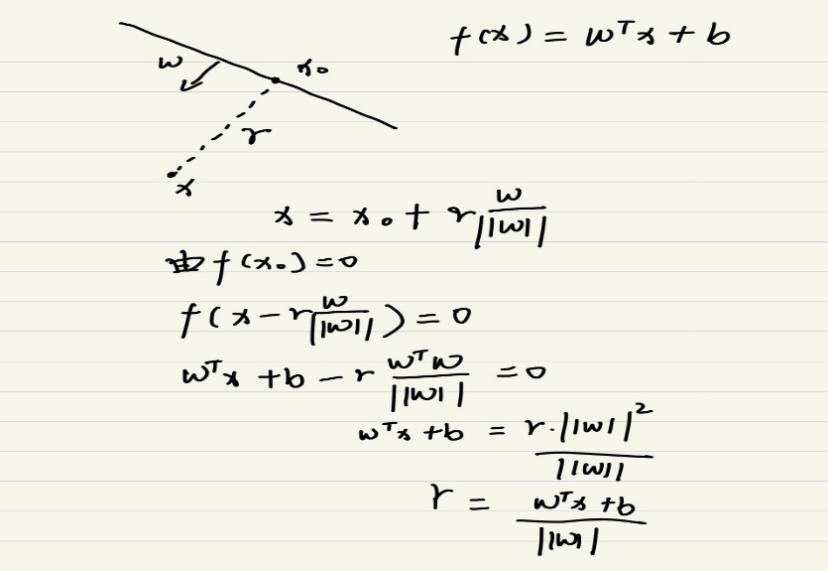 f(x) = wᵀx + b
w
x₀
r
x
x = x₀ + r w/||w||
由 f(x₀) = 0
f(x - r w/||w||) = 0
wᵀx + b - r wᵀw/||w|| = 0
wᵀx + b = r·||w||²/||w||
r = wᵀx + b/||w||